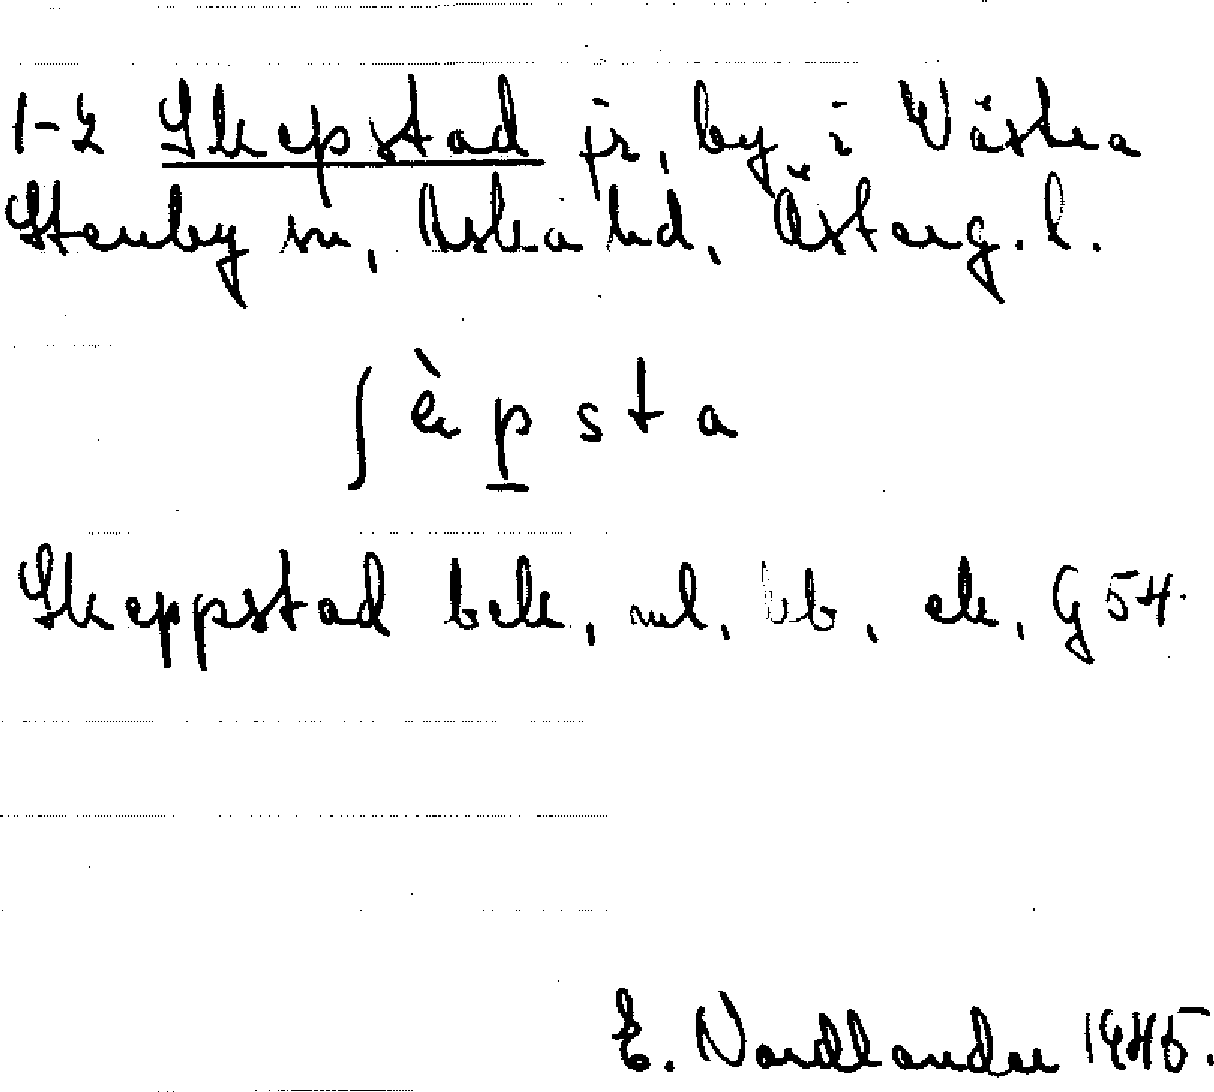 1-2 Skepstad fr. by i Västra
Stenby sn, Aska hd, Österg. l.
ʃ è p s t a
Skeppstad bek, ml, bb, ek, G 54.
E. Nordlander 1945.